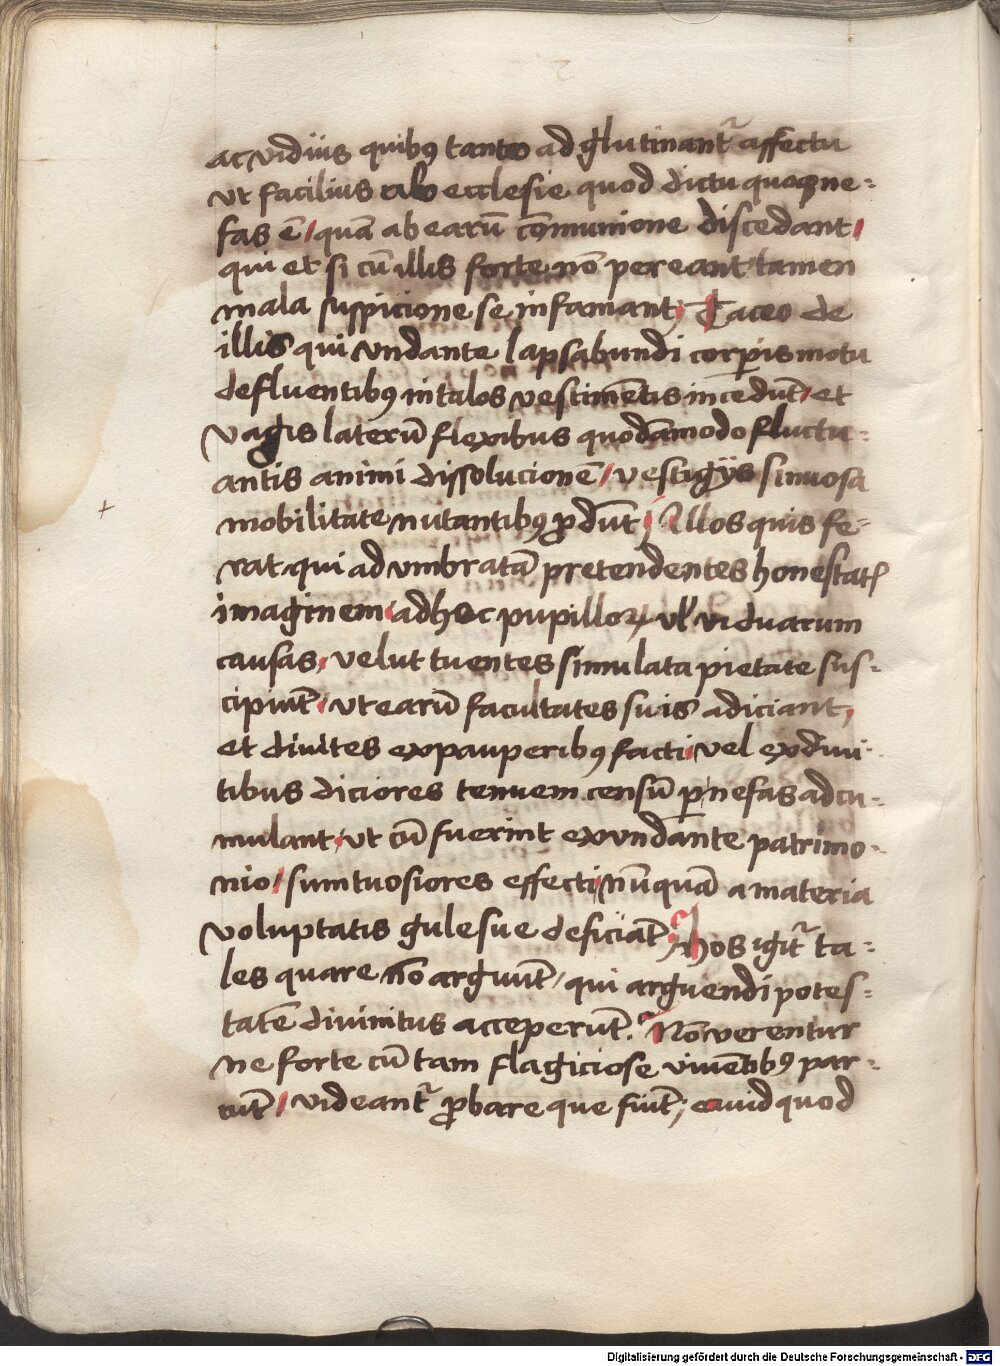 ac viduis quib9 tanto adglutinant᷑ affectu
Ut facilius ab ecclesie quod dictu quoqne=
fas ē / quā ab earū cōmunione discedant /
qui et si cū illis forte nō pereant tamen
mala suspicione se infamant; Taceo de
illis qui vndante lapsabundi corꝑis motu
defluentib9 intalos vestimētis incedūt / et
vagis laterū flexibus quodāmodo fluctu=
antis animi dissolucionē / vestigijs sinuosa
mobilitate nutantib9 ꝓdūt ; Illos quis fe=
rat qui adumbratā pretendentes honestat
imaginem / adhoc pupilloꝝ vl' viduarum
causas, velut tuentes simulata pietate sus=
cipiūt, ut earū facultates suis adiciant,
et divites expauperib9 facti, vel exdivi=
tibus diciores tenuem censū ꝑ nefas adcu=
mulant, ut cū fuerint exvndante patrimo=
nio / sumtuosiores effecti, nūquā a materia
voluptatis gulesue deficiāt; Hos igit᷑ ta=
les quare nō arguūt, qui arguendi potes=
tatē divinitus acceperūt. Nō verentur
ne forte cū tam flagiciose viuētib9 par=
cūt / videant᷑ ꝓbare que fiūt; quid quod
Digitalisierung gefördert durch die Deutsche Forschungsgemeinschaft - DFG